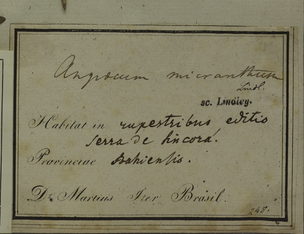 Angraecum micranthum
Lindl.
sc. Lindley.
Habitat in rupestribus editis
Serra de Sincorá.
Provinciae Bahiensis.
Dr. Martius Iter Brasil.
248.